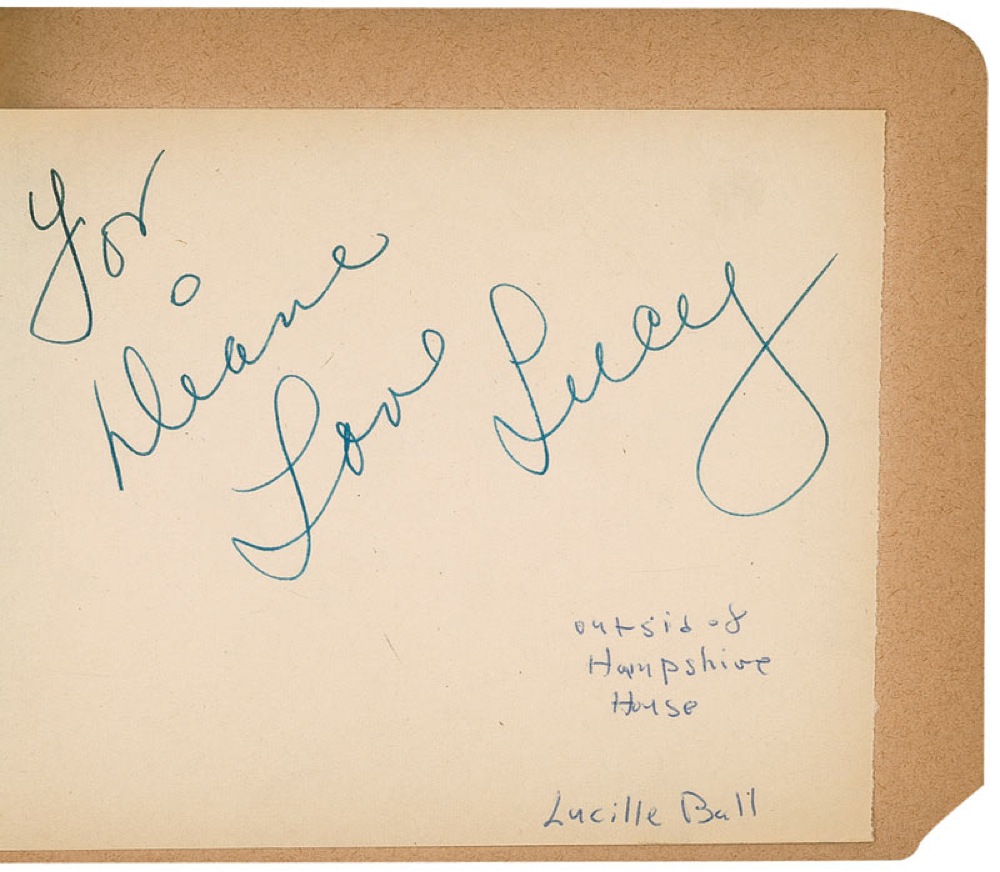 For
Diane
Love Lucy
outsid of
Hampshire
House
Lucille Ball